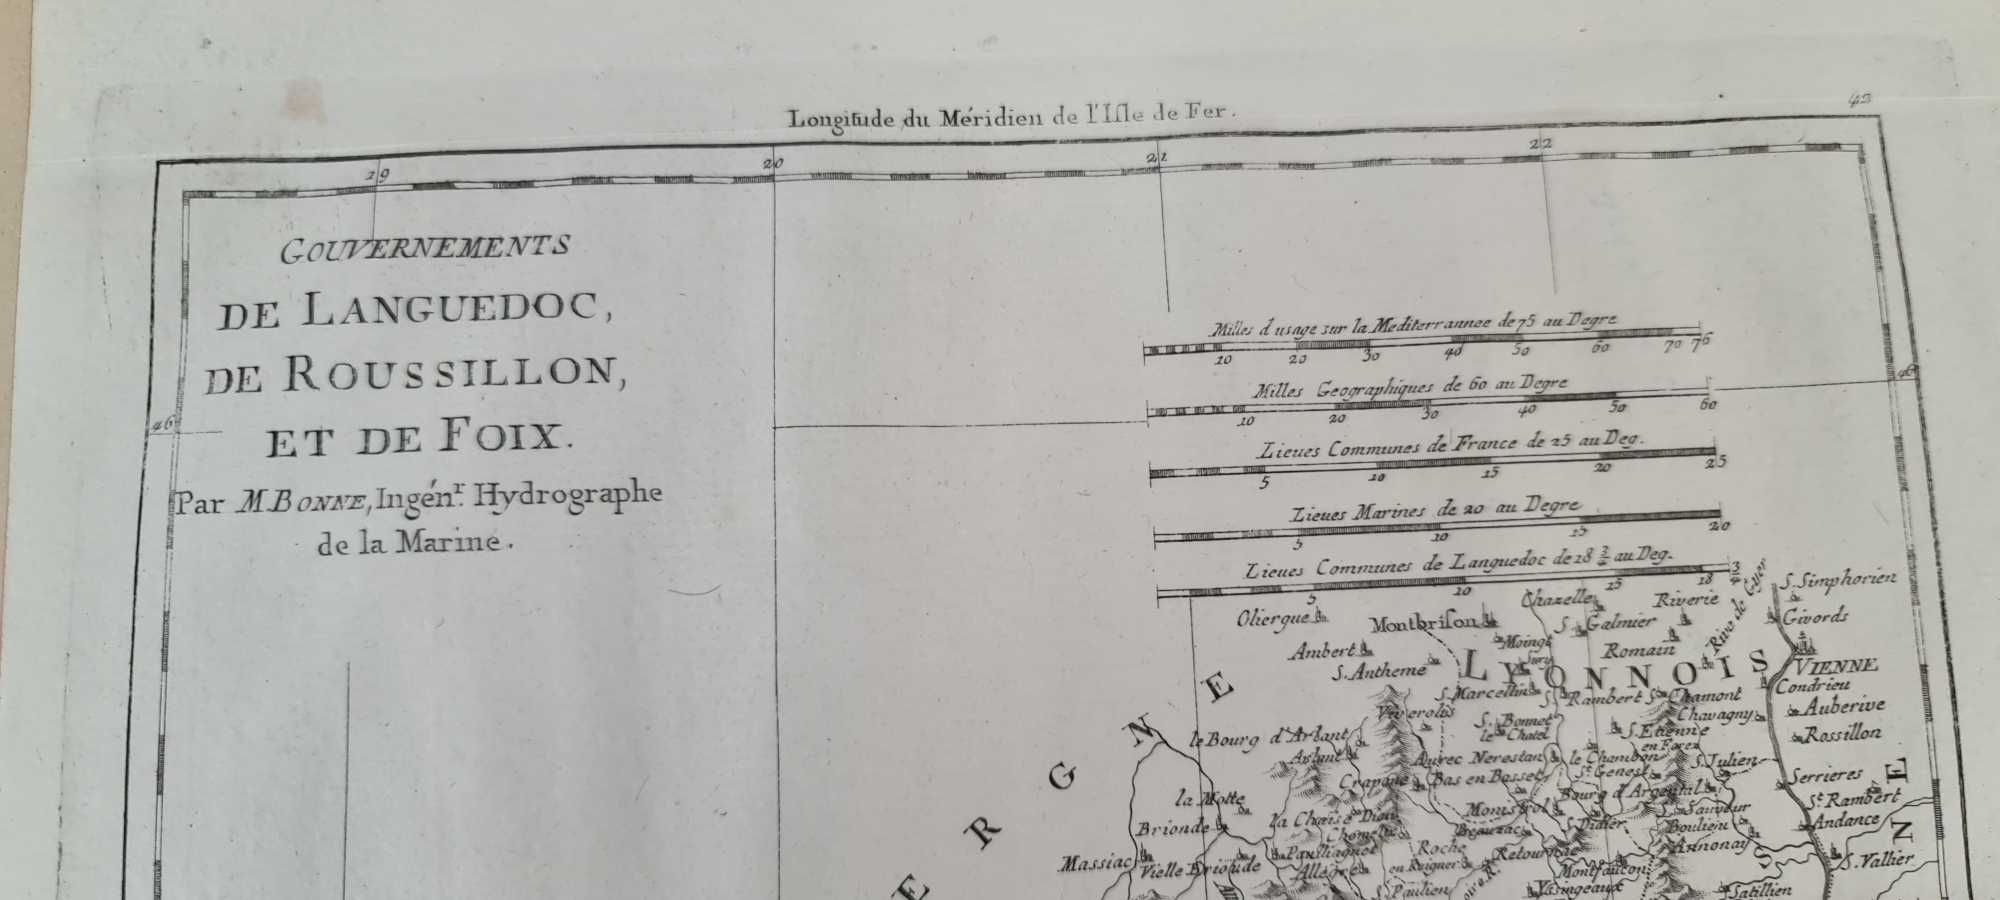 42
Longitude du Méridien de l'Isle de Fer.
19 20 21 22
GOUVERNEMENTS
DE LANGUEDOC,
DE ROUSSILLON,
ET DE FOIX.
Par M BONNE, Ingénr. Hydrographe
de la Marine.
46
46
Milles d usage sur la Mediterrannee de 75 au Degre
10 20 30 40 50 60 70 76
Milles Geographiques de 60 au Degre
10 20 30 40 50 60
Lieues Communes de France de 25 au Deg.
5 10 15 20 25
Lieues Marines de 20 au Degre
5 10 15 20
Lieues Communes de Languedoc de 18 3/4 au Deg.
5 10 15 18 3/4
Rive de Gyer
S. Simphorien
Chazelle
Riverie
Oliergue
Montbrison
S. Galmier
Givords
Moingt
Romain
Ambert
S. Antheme
Sury
LYONNOIS
VIENNE
S. Marcellin
S. Rambert
S. Chamont
Condrieu
Viverols
S. Bonnet
le Chatel
Chavagny
Auberive
le Bourg d'Arlant
S. Etienne
en Forez
Rossillon
Arlant
Aurec
Nerestan
le Chambon
S. Julien
Crapone
Bas en Basset
St. Genest
Serrieres
la Motte
Monistrol
Bourg d'Argental
St. Rambert
Brionde
la Chaise Dieu
S. Didier
S. Sauveur
Andance
Chomelis
Beauzac
Boulieu
Massiac
Vielle Brioude
Paulhaguet
Roche
en Regnier
Retournac
Annonay
S. Vallier
Allegre
Montfaucon
S. Paulien
Ysingeaux
Satillien
ERGNE
NE